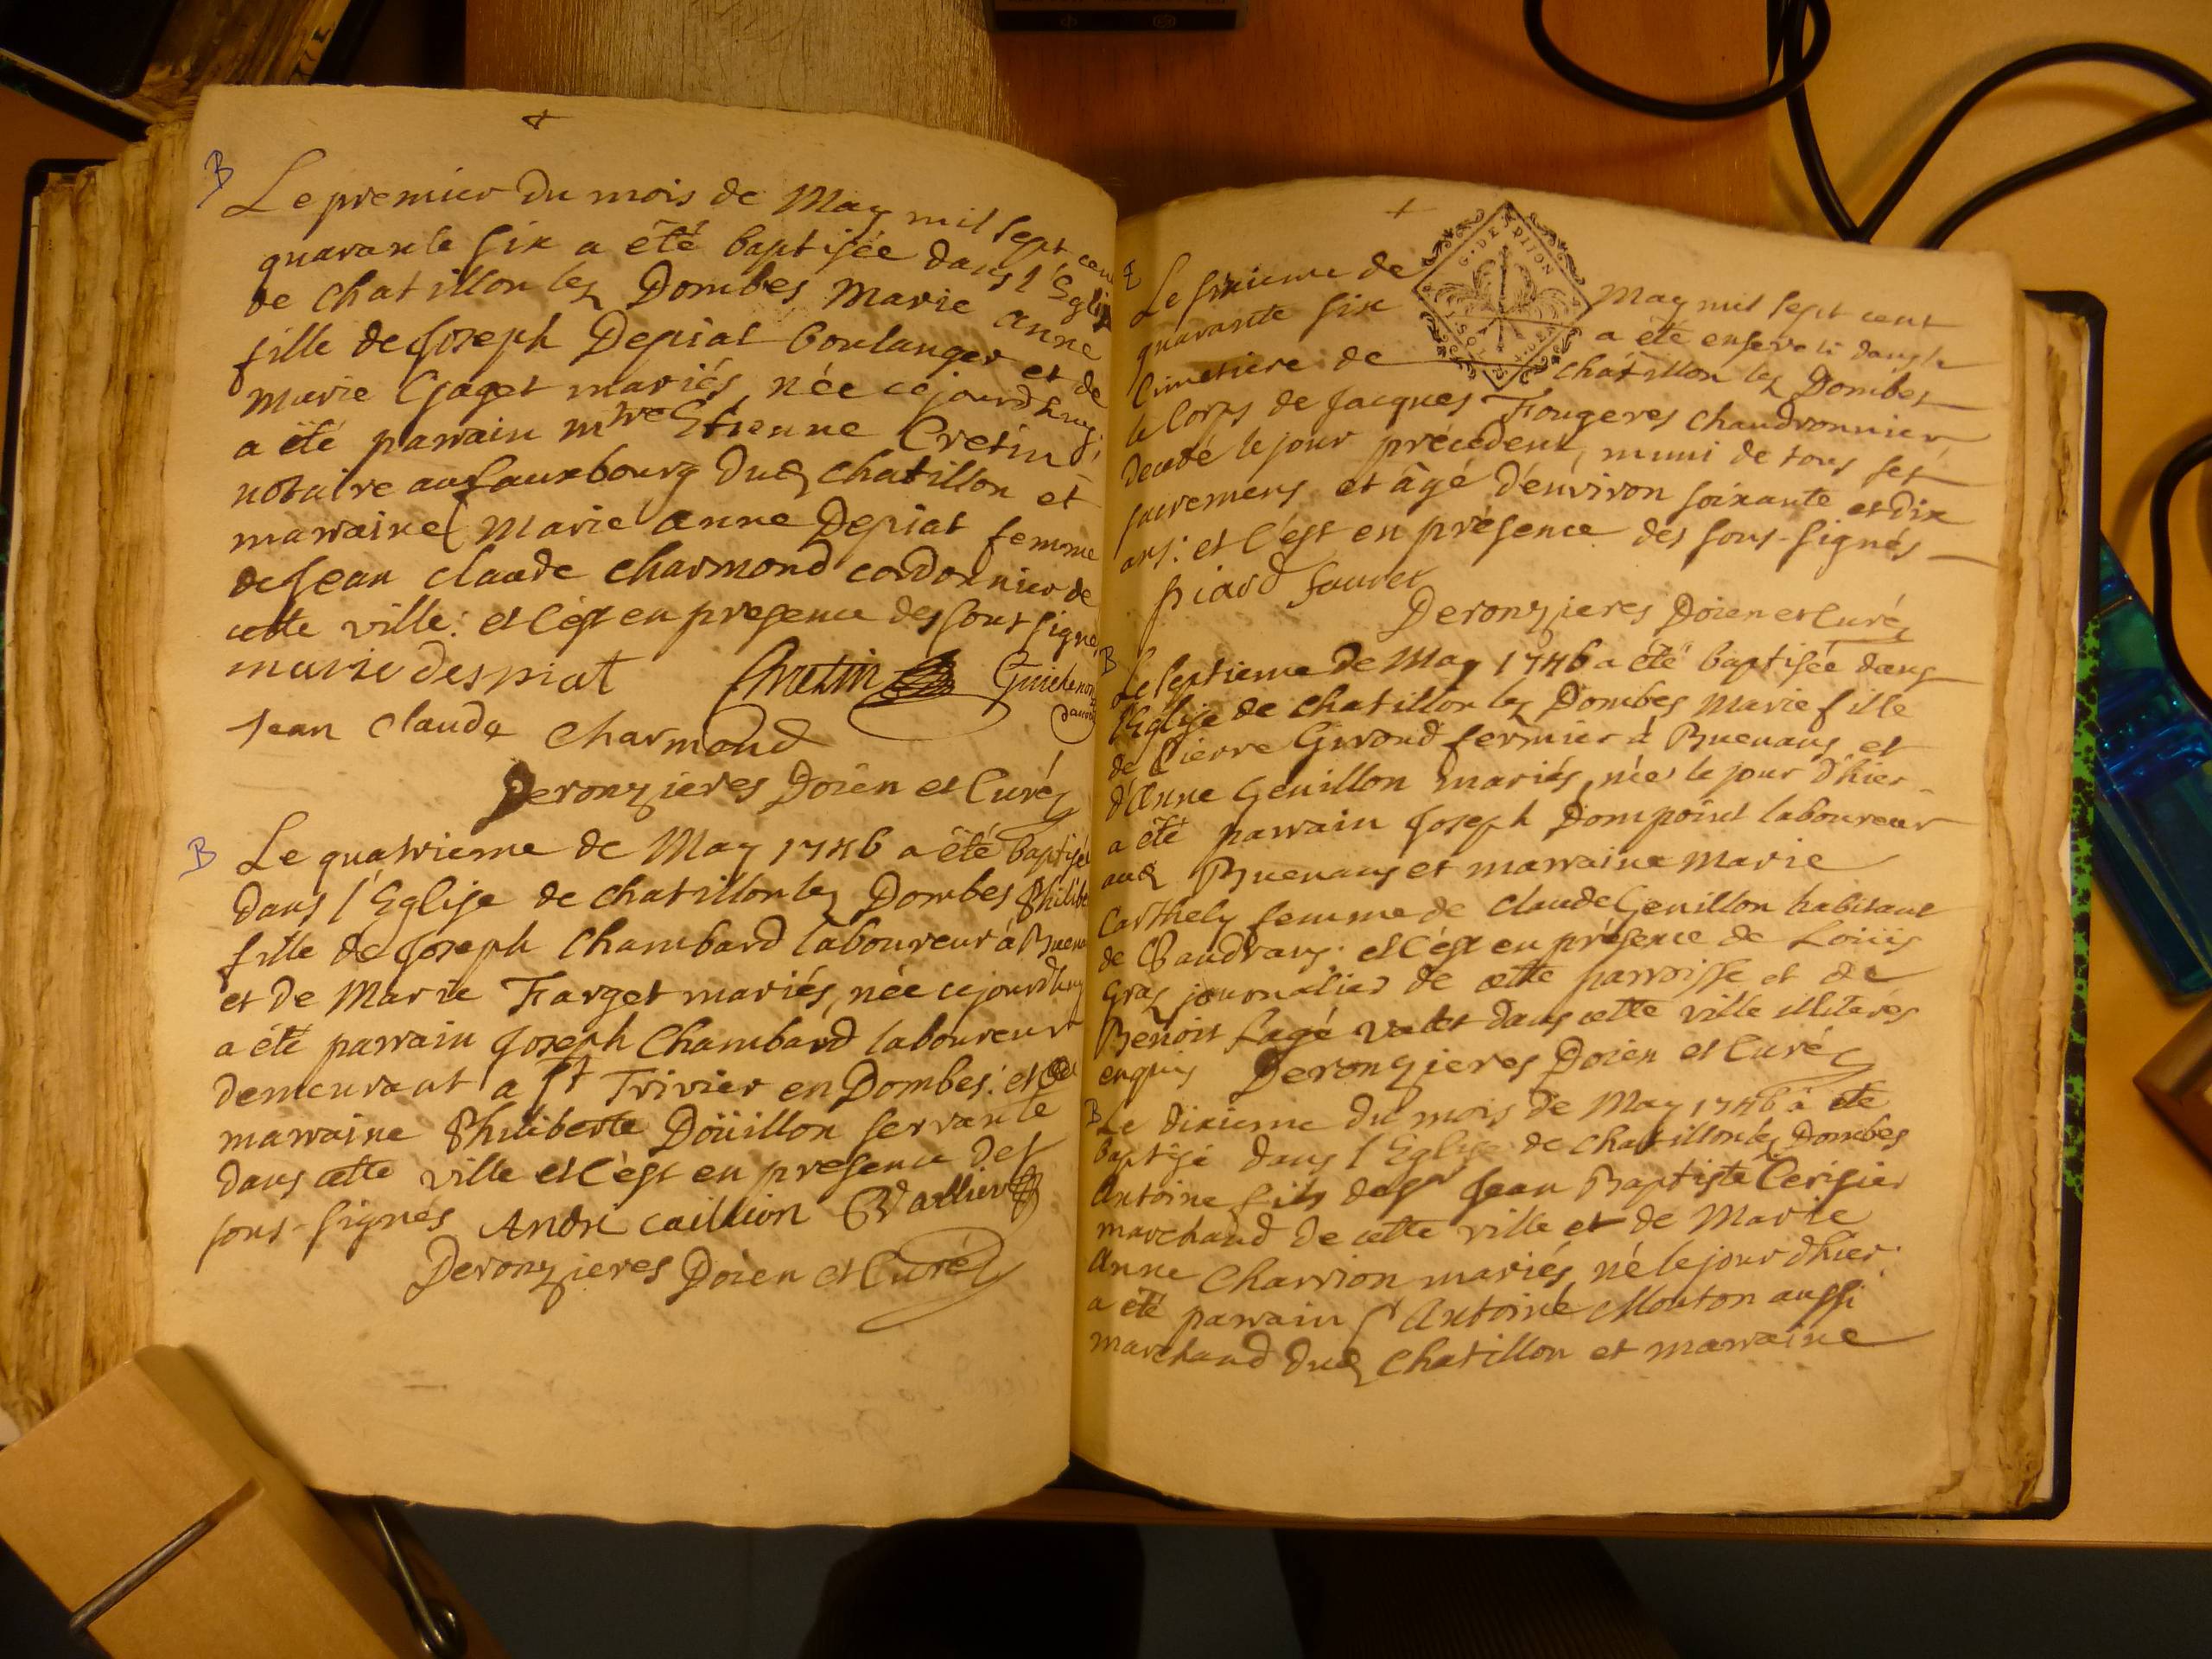 B
Le premier du mois de May mil sept cent
quarante six a été baptisée dans l'Eglise
de chatillon lez Dombes Marie anne
fille de Joseph Depiat boulanger et de
Marie Gaget mariés, née cejourdhuy;
a été parrain mtre Etienne Cretin
notaire au fauxbourg dud chatillon et
marraine Marie anne Depiat femme
de Jean claude charmond cordonnier de
cette ville: et c'est en presence des sous signés
marie despiat Cretin Guichenon
Jean Claude Charmond
Deronzieres Doien et Curé
B
Le quatrieme de May 1746 a été baptisée
dans l'Eglise de chatillon lez Dombes Philiberte
fille de Joseph Chambard laboureur à Buenans
et de Marie Farget mariés, née cejourdhuy
a été parrain Joseph Chambard laboureur
demeurant a St Trivier en Dombes: et
marraine Philiberte Doüillon servante
dans cette ville et c'est en presence des
sous-signés Andre caillion Vallier
Deronzieres Doien et Curé
G. DE DIJON
Le sixieme de May mil sept cent
quarante six a été enseveli dans le
Cimetiere de chátillon lez Dombes
le Corps de Jacques Fougeres chaudronnier
decedé le jour précedent, muni de tous ses
sacremens et âgé d'environ soixante et dix
ans: et c'est en présence des sous-signés
piard fauret
Deronzieres Doien et Curé
B
Le septieme de May 1746 a été baptisée dans
l'Eglise de chatillon lez Dombes Marie fille
de Pierre Girond fermier à Buenans et
d'Anne Genillon mariés, née le jour d'hier
a été parrain Joseph Dompoint laboureur
aud Buenans et marraine Marie
Carthely femme de claude Genillon habitant
de Baudrans: et c'est en présence de Loüis
Gras journalier de cette parroisse et de
Benoit fagé valet dans cette ville illiterés
enquis Deronzieres Doien et Curé
B
Le dixieme du mois de May 1746 a été
baptisé dans l'Eglise de chatillon lez Dombes
Antoine fils de sr Jean Baptiste Cerisier
marchand de cette ville et de Marie
Anne Charrion mariés, né le jour d'hier:
a été parrain sr Antoine Monton aussi
marchand dud chatillon et marraine